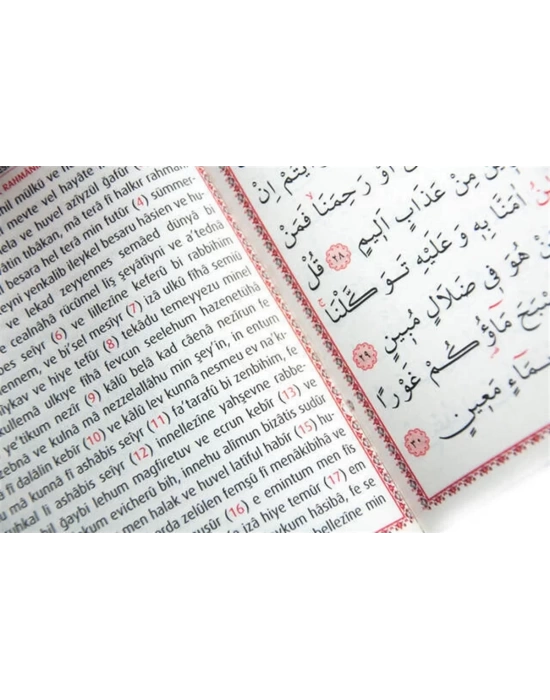 RAHMANİ
mülkü ve
mevte vel hayate
ve huvel azîyzül gafûr
tıbâkan, mâ terâ fî halkır rahmani
besara hel terâ min futûr (4) sümmer-
yenkalib ileykel besaru hâsien ve hu-
ve lekad zeyyennes semâed dünyâ bi
cealnâhâ rücûmel liş şeyâtîyni ve a'tednâ
seîyr (6) ve lillezîne keferû bi rabbihim
ennem, ve bi'sel mesîyr (7) izâ ülkû fîhâ semiû
ve hiye tefûr (8) tekâdu temeyyezu minel
kullemâ ulkıye fîhâ fevcun seelehum hazenetühâ
e'tikum nezîr (9) kâlû belâ kad câenâ nezîrun fe
zebnâ ve kulnâ mâ nezzelallâhu min şey'in, in entum
fî dalâlin kebîr (10) ve kâlû lev kunnâ nesmeu ev na'k-
mâ kunnâ fî ashâbis seîyr (11) fa'tarafû bi zenbihim, fe
suhkal li ashâbis seîyr (12) innellezîne yahşevne rabbe-
bil ğaybi lehum mağfiretuv ve ecrun kebîr (13) ve
kum evicherû bih, innehu alîmun bizâtis sudûr
men halak ve huvel latîful habîr (15) hu-
arda zelûlen femşû fî menâkibihâ ve
nuşûr (16) e emintum men fis
izâ hiye temûr (17) em
aykum hâsibâ, fe se
bellezîne min
اَوْ رَحِمَنَا فَمَنْ
مِنْ عَذَابٍ اَلِيمٍ ﴿٢٨﴾ قُلْ
اٰمَنَّا بِهٖ وَعَلَيْهِ تَوَكَّلْنَا
هُوَ فِى ضَلَالٍ مُبِينٍ ﴿٢٩﴾
مَاؤُكُمْ غَوْرًا
مَعِينٍ ﴿٣٠﴾